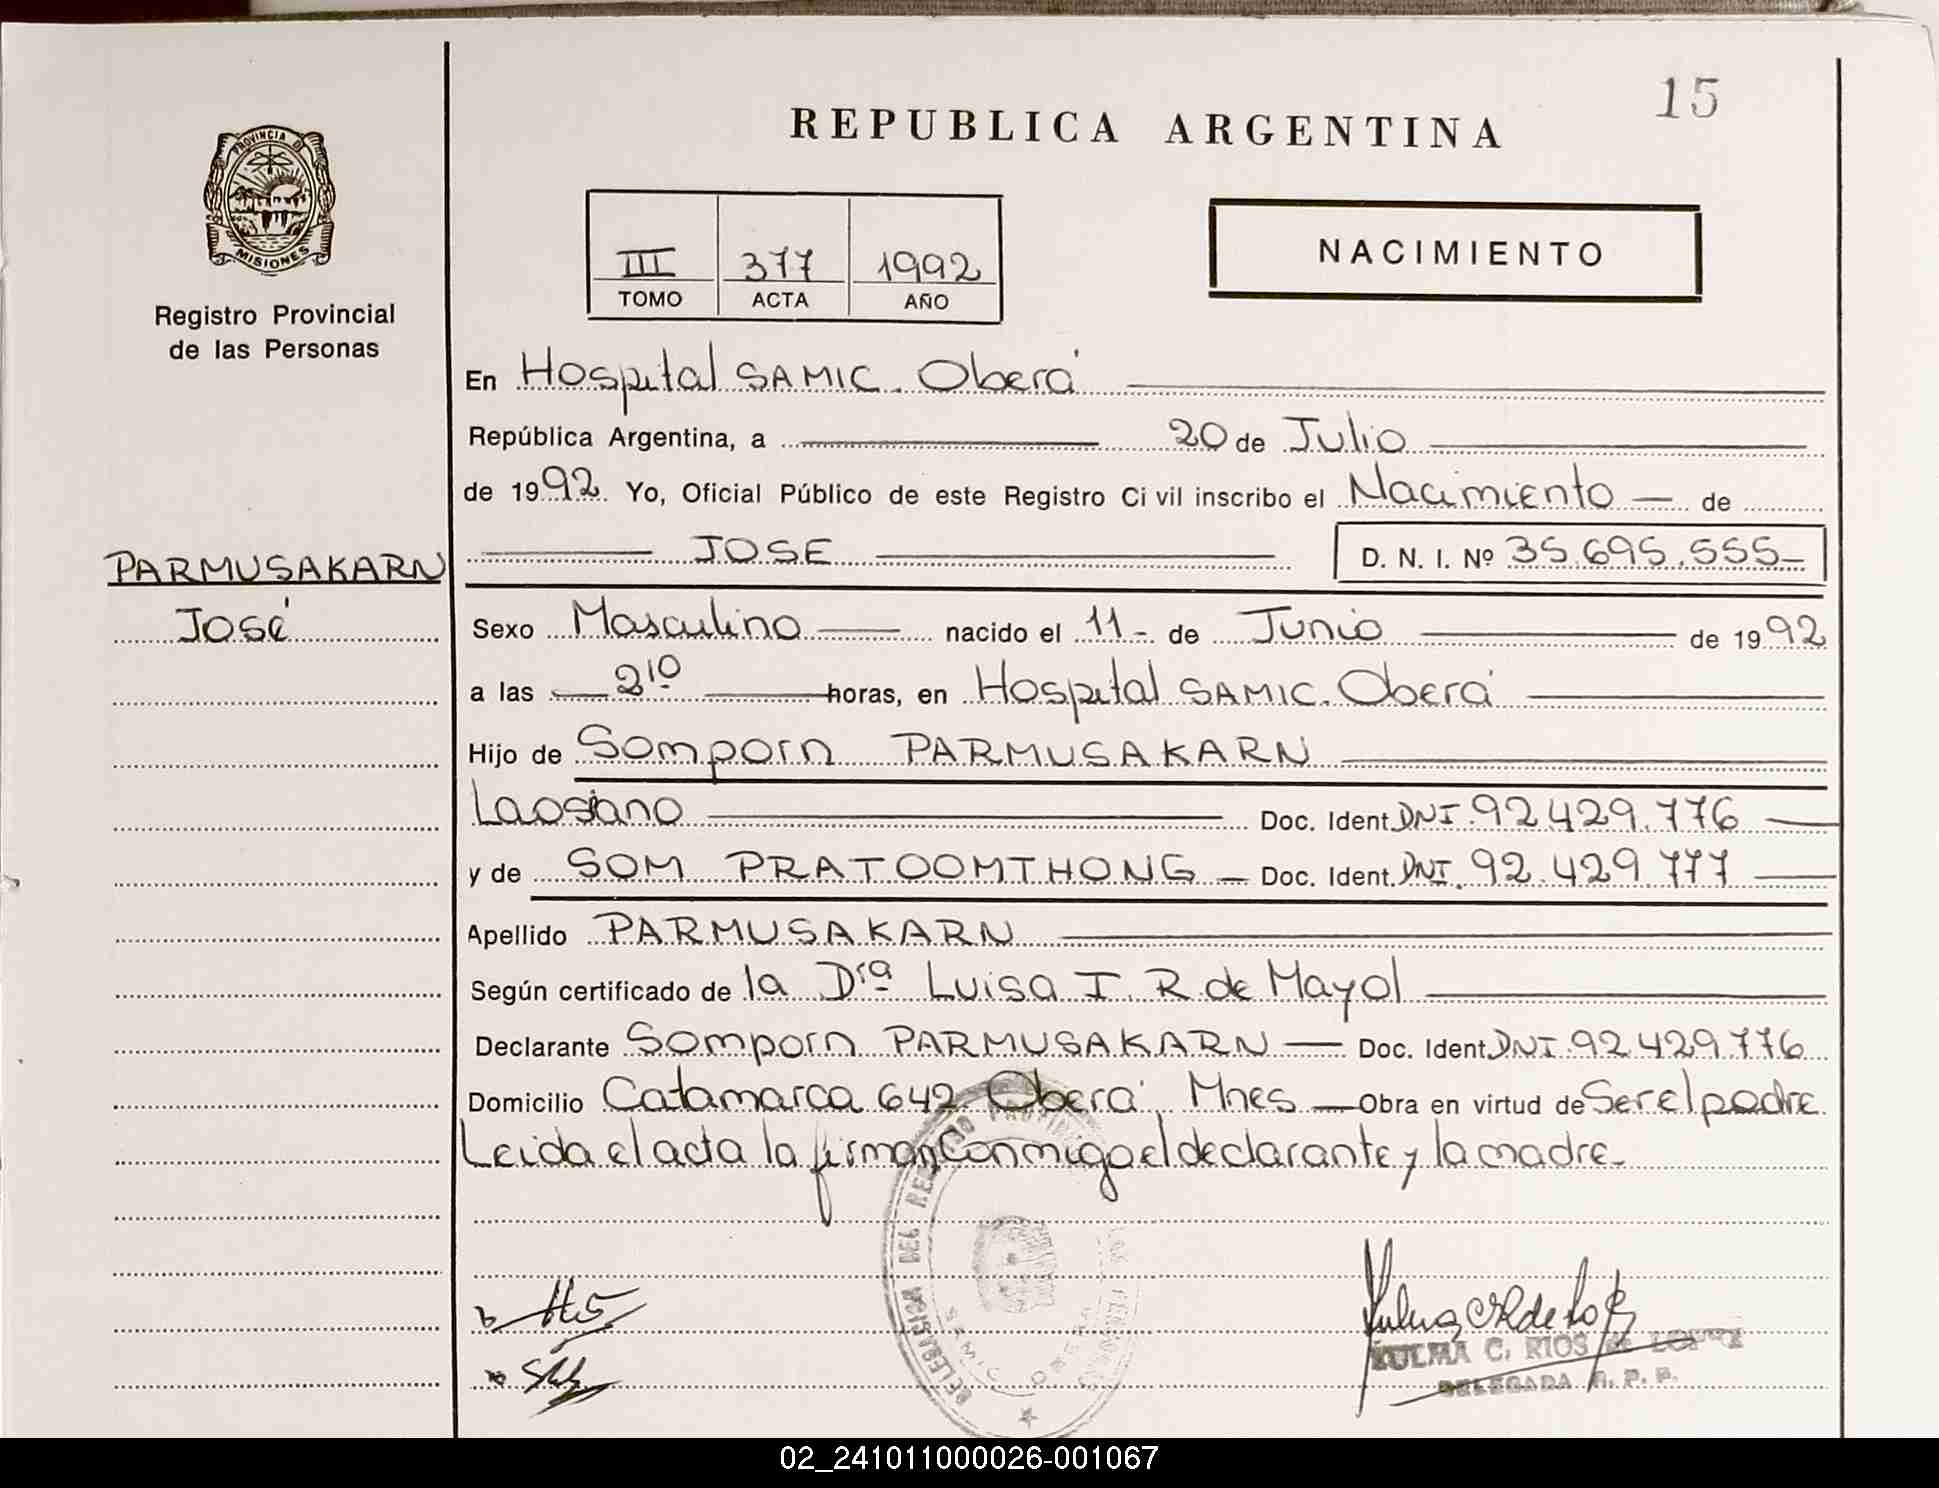 15
REPUBLICA ARGENTINA
PROVINCIA DE
MISIONES
Registro Provincial
de las Personas
III 377 1992
TOMO ACTA AÑO
NACIMIENTO
En Hospital SAMIC. Oberá
República Argentina, a 20 de Julio
de 1992. Yo, Oficial Público de este Registro Civil inscribo el Nacimiento de
PARMUSAKARN
José
JOSE D. N. I. Nº 35.695.555
Sexo Masculino nacido el 11 de Junio de 1992
a las 2¹⁰ horas, en Hospital SAMIC. Oberá
Hijo de Somporn PARMUSAKARN
Laosiano Doc. Ident. DNI. 92.429.776
y de SOM PRATOOMTHONG Doc. Ident. DNI. 92.429.777
Apellido PARMUSAKARN
Según certificado de la Dra Luisa I. R. de Mayol
Declarante Somporn PARMUSAKARN Doc. Ident. DNI. 92.429.776
Domicilio Catamarca 642. Oberá, Mnes Obra en virtud de Ser el padre
Leida el acta la firman conmigo el declarante y la madre.
DELEGACION DEL REGISTRO PROVINCIAL DE LAS PERSONAS
SAMIC OBERA
ZULMA C. RIOS de LOPEZ
DELEGADA R. P. P.
02_241011000026-001067